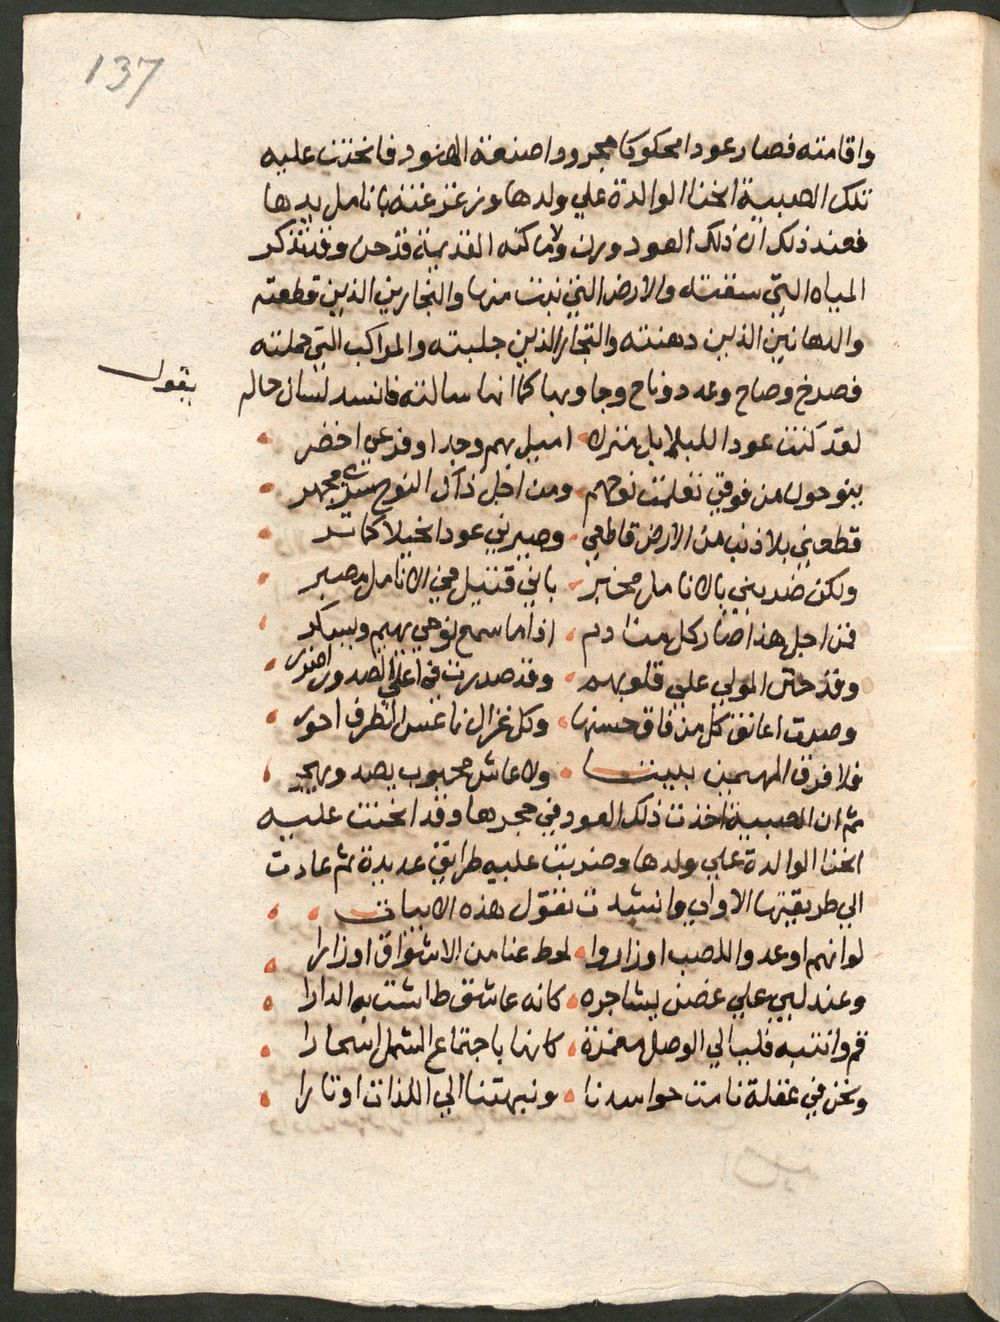 137
واقامته فصار عودا محكوكا مجرودا صنعة الهنود فانحنت عليه
تلك الصبية انحنا الوالدة علي ولدها وزغزغته بانامل يدها
فعند ذلك ان ذلك العود ورن ولاماكنه القديمة قد حن وقد تذكر
المياه التي سقته والارض التي نبت منها والنجارين الذين قطعته
والدهانين الذين دهنته والتجار الذين جلبته والمراكب التي حملته
فصرخ وصاح وعدد وناح وجاوبها كما انها سالته فانسد لسان حاله
يقول
لقد كنت عودا للبلابل منزله اميل بهم وجدا وفرعي اخضر
ينوحون من فوقي تعلمت نوحهم ومن اجل ذاك النوح سري مجهر
قطعني بلا ذنب من الارض قاطعي وصيرني عودا نحيلا كما تر
ولكن ضربني بالانامل مخبر باني قتيل في الانامل مصبر
فمن اجل هذا صار كل منادم اذا ما سمع نوحي يهيم ويسكر
وقد حنن المولي علي قلوبهم وقد صدرت في اعلي الصدور اصدر
وصرت اعانق كل من فاق حسنها وكل غزال ناعس الطرف احور
فلا فرق المهيمن بيننا ولا عاش محبوب يصد ويهجر
ثم ان الصبية اخذت ذلك العود في حجرها وقد انحنت عليه
انحنا الوالدة علي ولدها وضربت عليه طرايق عديدة ثم عادت
الي طريقتها الاولي وانشدت تقول هذه الابيات
لو انهم اوعدوا للصب اوزاروا لحط عنا من الاشواق اوزارا
وعندليب علي غصن يشاجره كانه عاشق طاشت به الدارا
قم وانتبه فليالي الوصل مغمزة كانها باجتماع الشمل اسحارا
ونحن في غفلة نامت حواسدنا ونبهتنا الي اللذات اوتارا